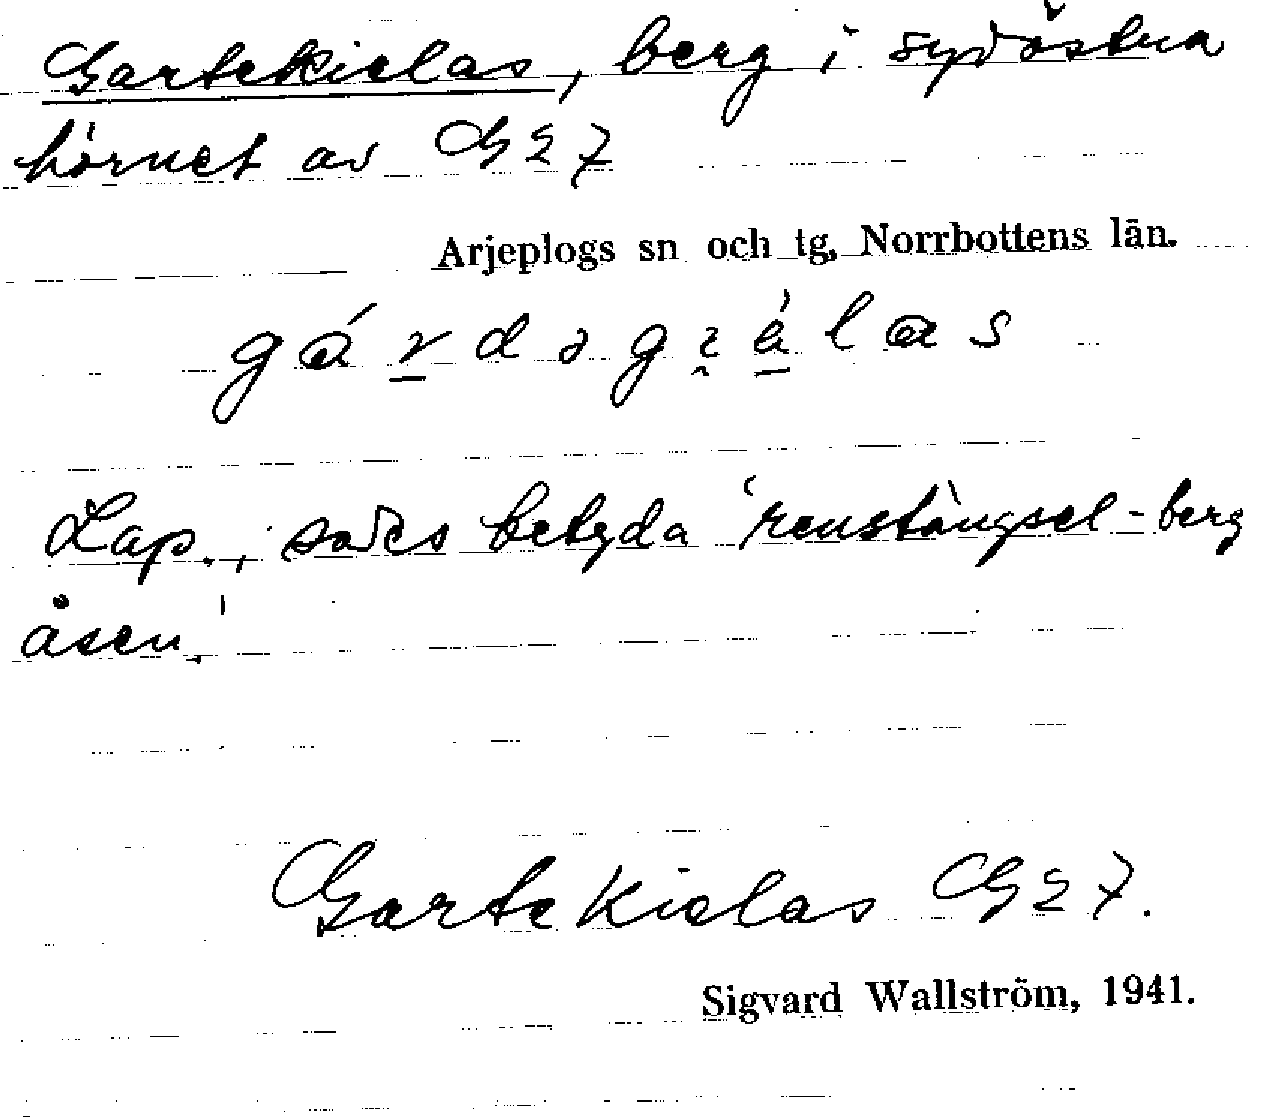 Gartekielas, berg i sydöstra
hörnet av G27
Arjeplogs sn och tg, Norrbottens län.
Lap., sades betyda 'renstängsel-berg
åsen.'
Gartekielas G27.
Sigvard Wallström, 1941.